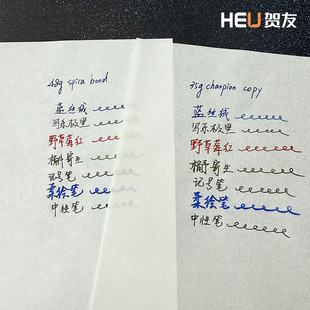 HEU贺友
48g spica bond
蓝丝绒
写乐极黑
野草莓红
槲寄生
记号笔
柔绘笔
中性笔
35g chanpion copy
蓝丝绒
写乐极黑
野草莓红
槲寄生
记号笔
柔绘笔
中性笔